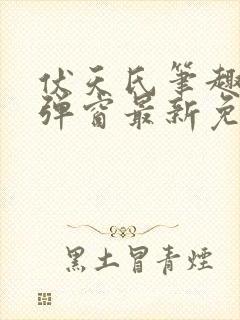 伏天氏笔趣
弹窗最新免
黑土冒青烟